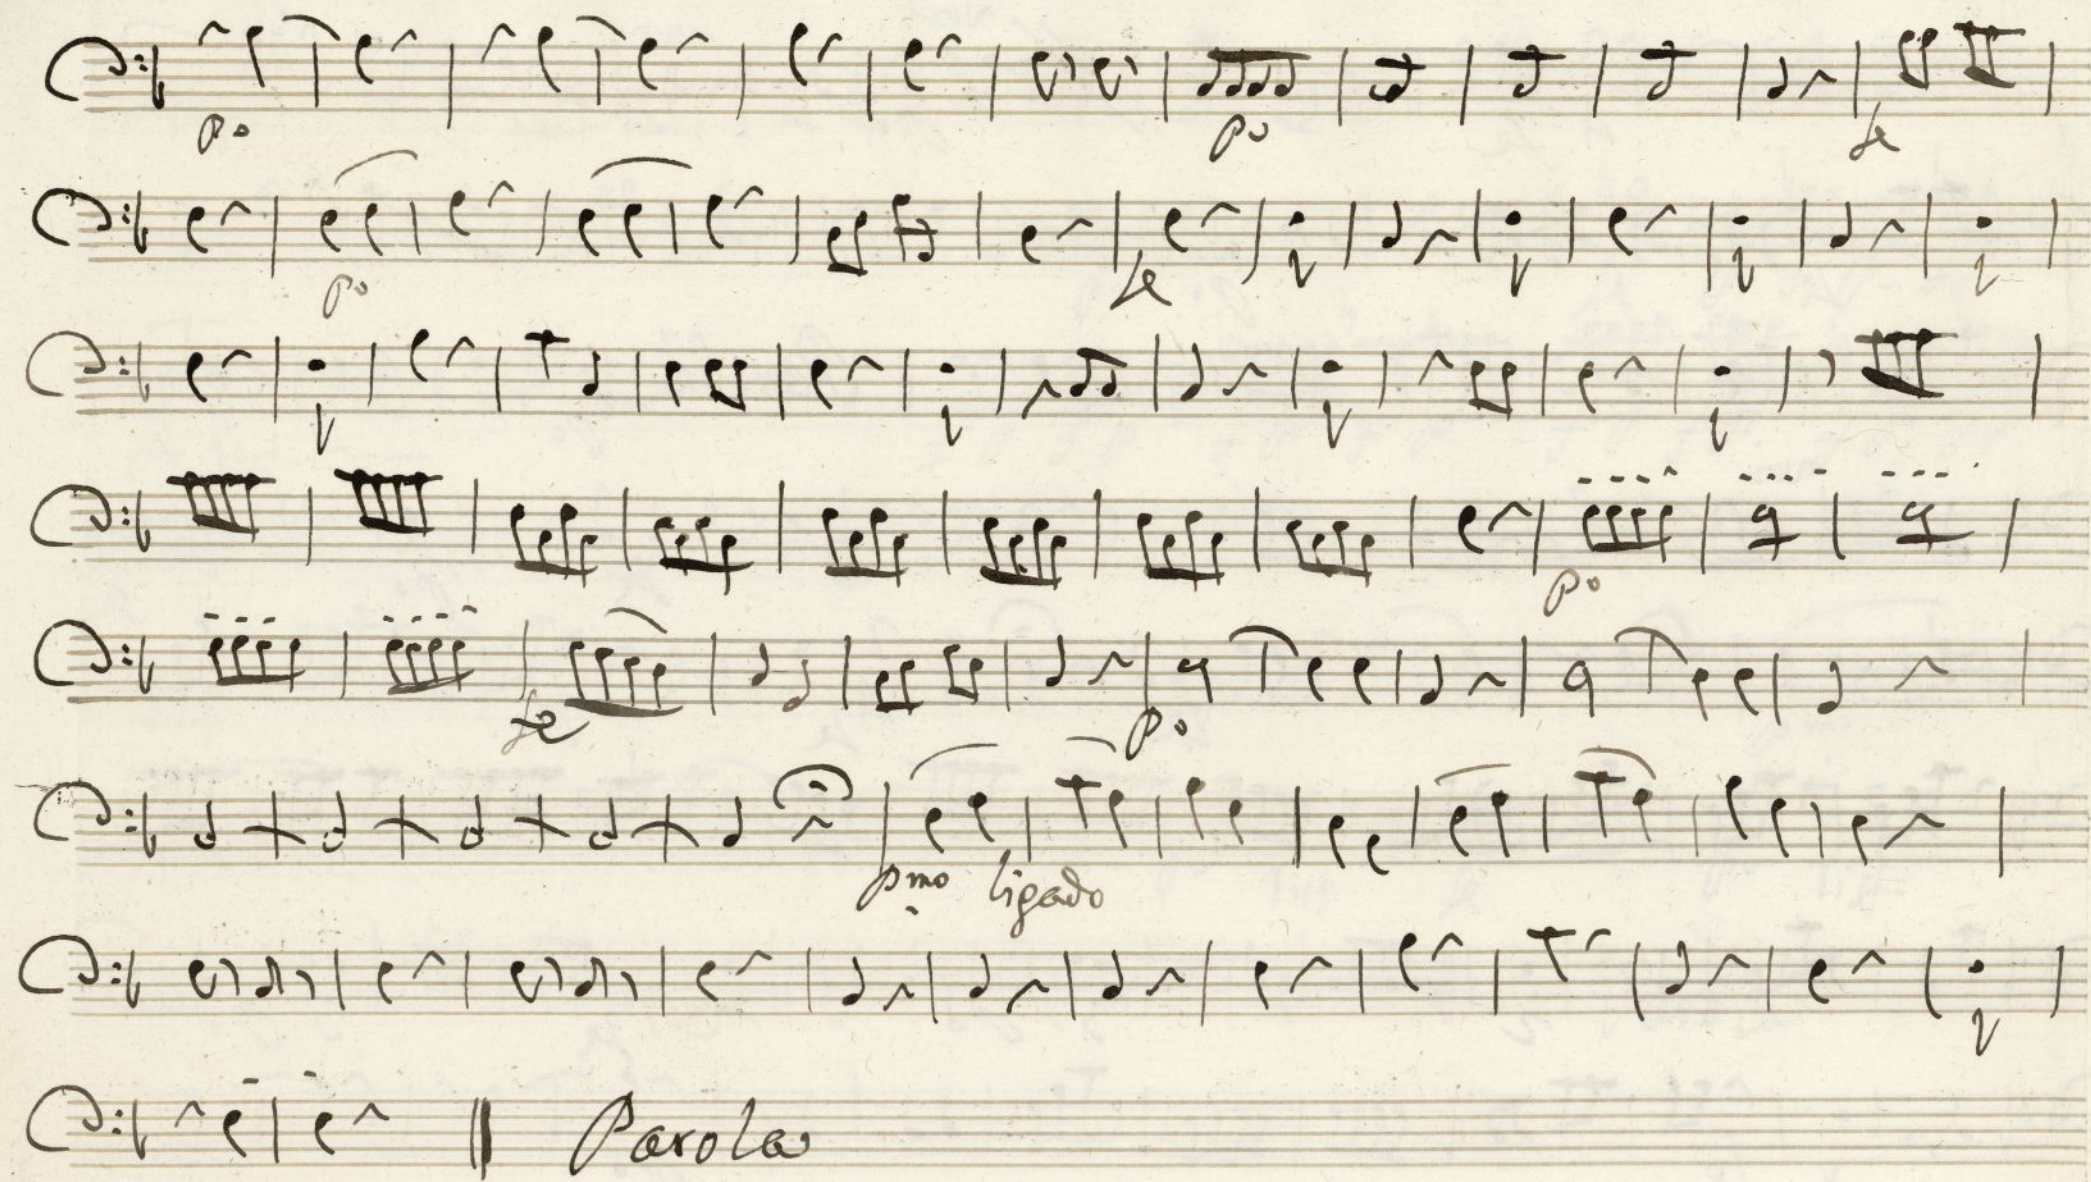 po po fe
po fe
po
fe po
pmo ligado
Parola